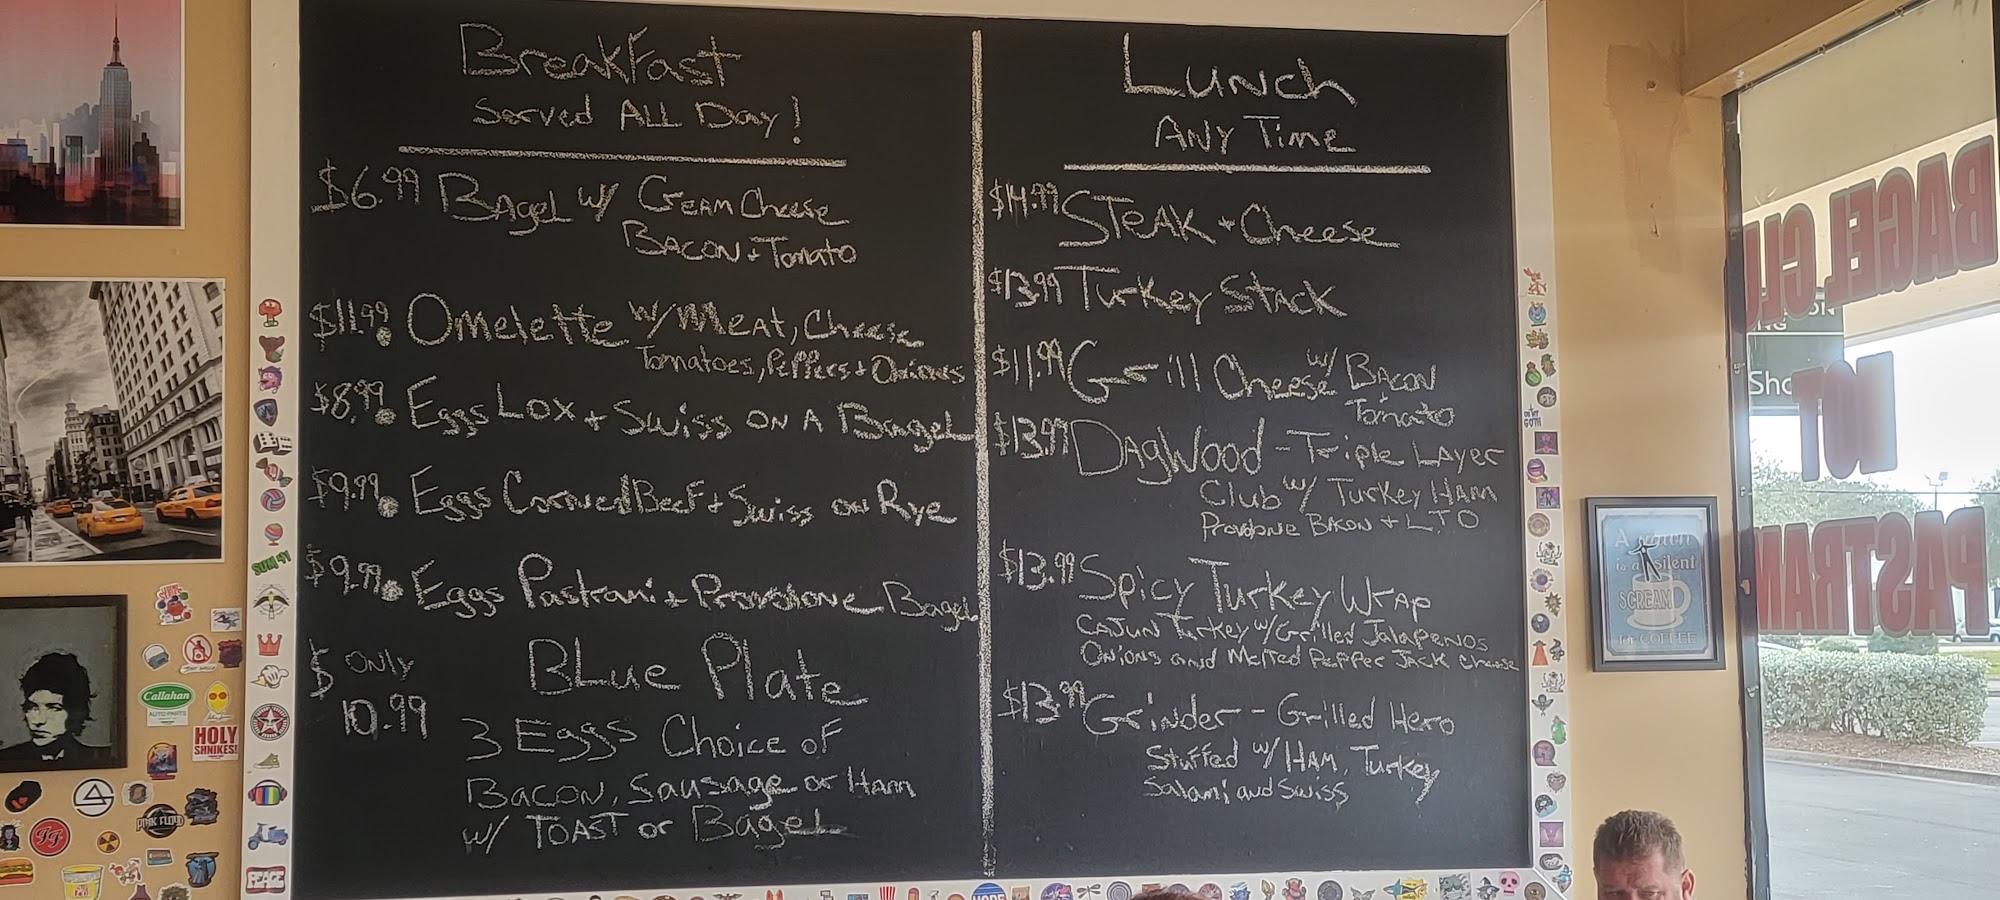 BreakFast
Served ALL Day!
$6.99 Bagel w/ Cream Cheese
Bacon + Tomato
$11.99 Omelette w/ Meat, Cheese
Tomatoes, Peppers + Onions
$8.99 Eggs Lox + Swiss on a Bagel
$9.99 Eggs Corned Beef + Swiss on Rye
$9.99 Eggs Pastrami + Provolone Bagel
$ Only 10.99
Blue Plate
3 Eggs Choice of
Bacon, Sausage or Ham
w/ Toast or Bagel
Lunch
Any Time
$14.99 Steak + Cheese
$13.99 Turkey Stack
$11.99 Grill Cheese w/ Bacon
+ Tomato
$13.99 DagWood - Triple Layer
Club w/ Turkey Ham
Provolone Bacon + L.T.O
$13.99 Spicy Turkey Wrap
Cajun Turkey w/ Grilled Jalapenos
Onions and Melted Pepper Jack cheese
$13.99 Grinder - Grilled Hero
Stuffed w/ Ham, Turkey
Salami and Swiss
BAGEL
NOT
PASTRAM
Sho
A
is a silent
SCREAM
for COFFEE
SUM 41
Callahan
AUTO PARTS
HOLY
SHNIKES!
PINK FLOYD
FF
PEACE